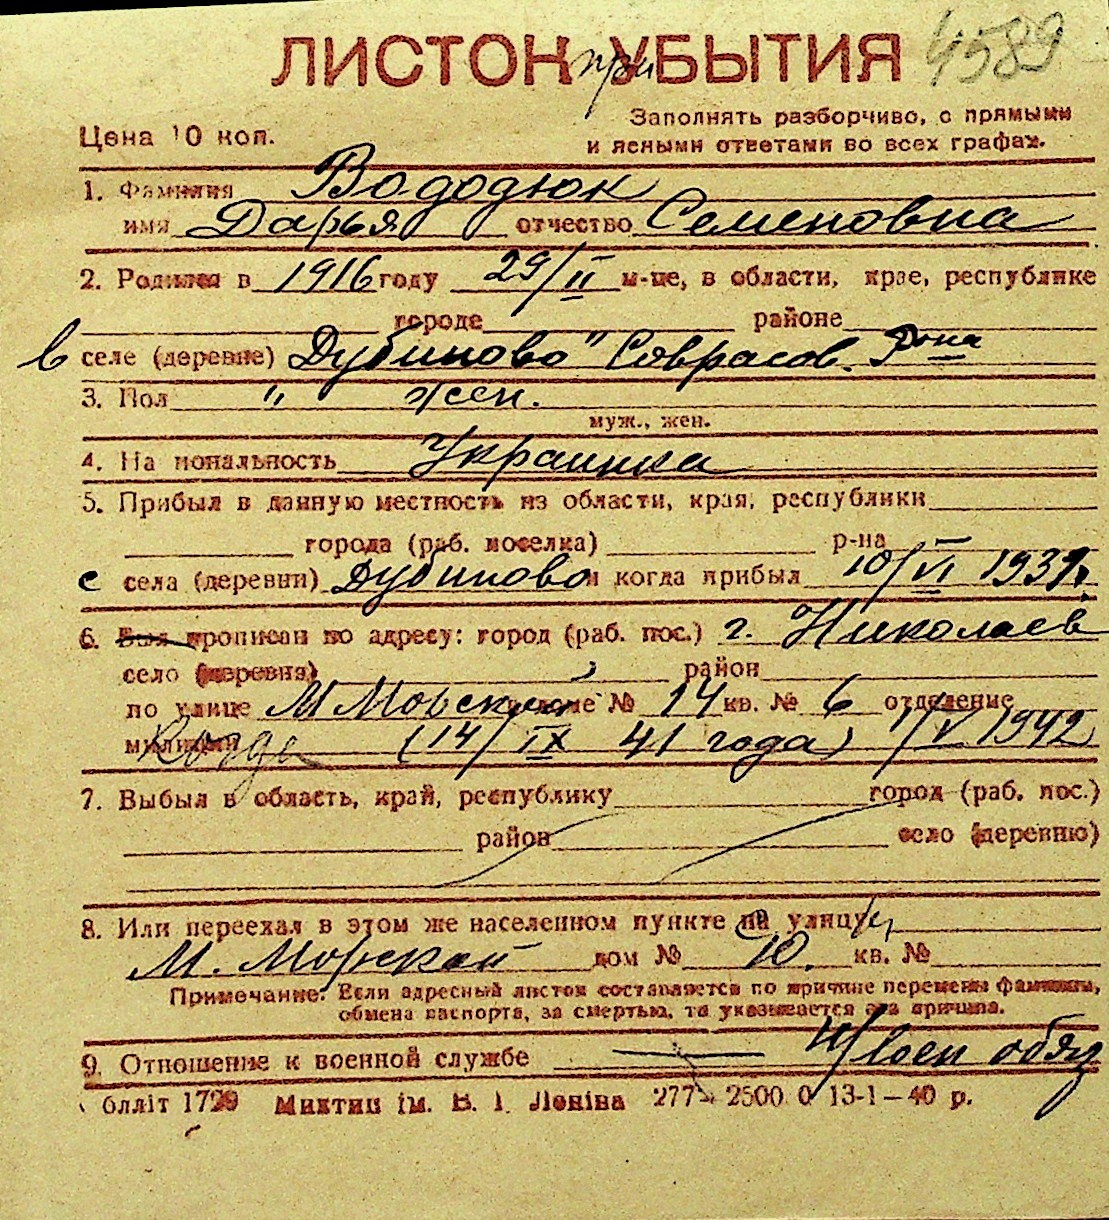 4589
ЛИСТОК при УБЫТИЯ
Заполнять разборчиво, с прямыми
Цена 10 коп.
и ясными ответами во всех графах.
1. Фамилия Вододюк
имя Дарья отчество Семеновна
2. Родился в 1916 году 29/II м-це, в области, крае, республике
городе районе
в селе (деревне) Дубиново" Соврасов. Р-она
3. Пол " жен.
муж., жен.
4. На иональность Украинка
5. Прибыл в данную местность из области, края, республики
города (раб. поселка) р-на
с села (деревни) Дубиново и когда прибыл 10/VI 1939.
6. Был прописан по адресу: город (раб. пос.) г. Николаев
село (деревня) район
по улице М Морской доме № 14 кв. № 6 отделение
милиции Когда (14/IX 41 года) 1/V 1942
7. Выбыл в область, край, республику город (раб. пос.)
район село (деревню)
8. Или переехал в этом же населенном пункте на улицу
М. Морской дом № 10. кв. №
Примечание: Если адресный листок составляется по причине перемены фамилии,
обмена паспорта, за смертью, то указывается эта причина.
9. Отношение к военной службе — н/воен обяз
блліт 1729 Миктип ім. В. І. Леніна 277 – 2500 0 13-1–40 р.